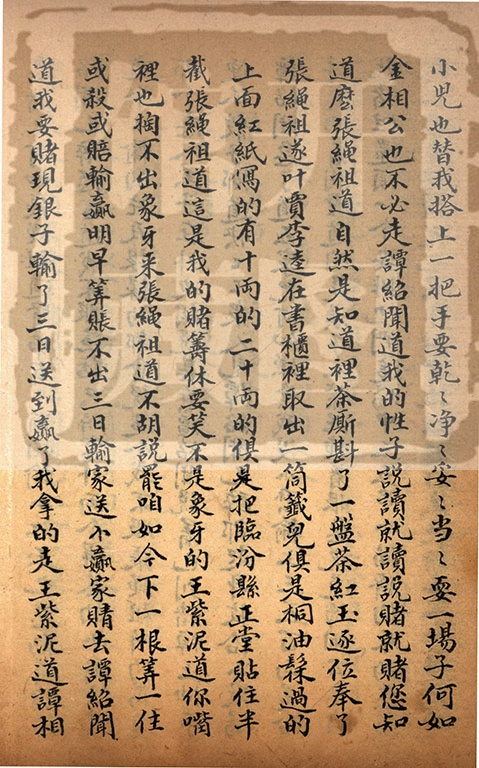 小児也替我搭上一把手要乾〻净〻妥〻当〻耍一場子何如
金相公也不必走譚紹聞道我的性子説讀就讀説賭就賭您知
道麽張繩祖道自然是知道裡茶厮斟了一盤茶紅玉逐位奉了
張繩祖遂叶賈李逵在書櫃裡取出一筒籤兒俱是桐油髹過的
上面紅紙寫的有十両的二十両的俱是把臨汾縣正堂貼住半
截張繩祖道這是我的賭籌休要笑不是象牙的王紫泥道你嘴
裡也掏不出象牙来張繩祖道不胡説罷咱如今下一根筭一住
或殺或賠輸贏明早筭賬不出三日輸家送不贏家賭去譚紹聞
道我要賭現銀子輸了三日送到贏了我拿的走王紫泥道譚相